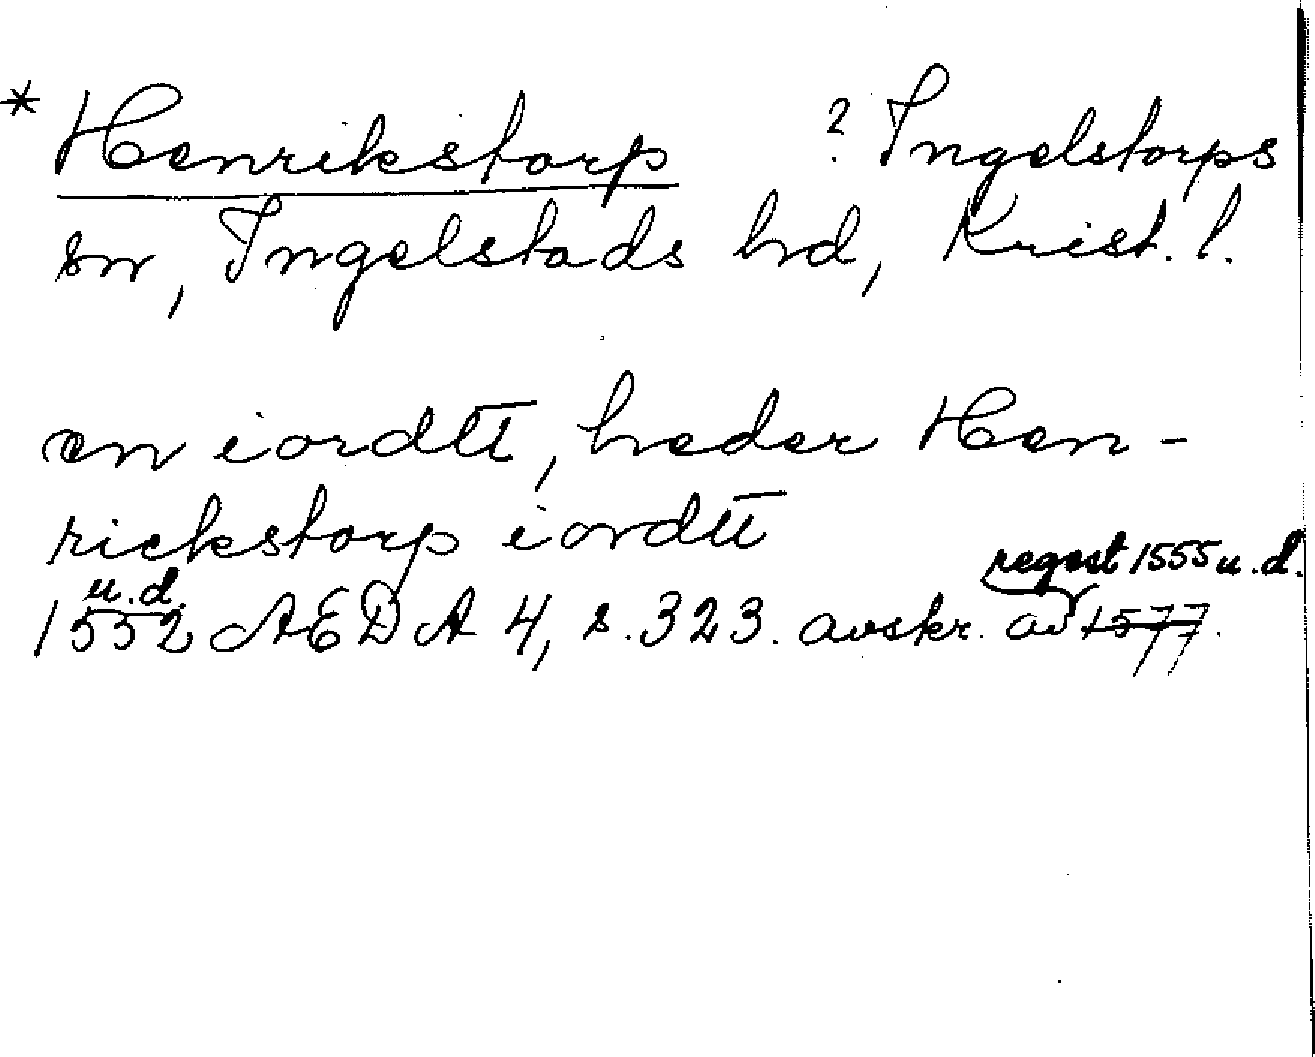 * Henrikstorp ? Ingelstorps
sn, Ingelstads hd, Krist. l.
en iordtt, heder Hen-
rickstorp iordtt
u.d. regest 1555 u.d.
1552 AEDA 4, s. 323. avskr. av 1577.